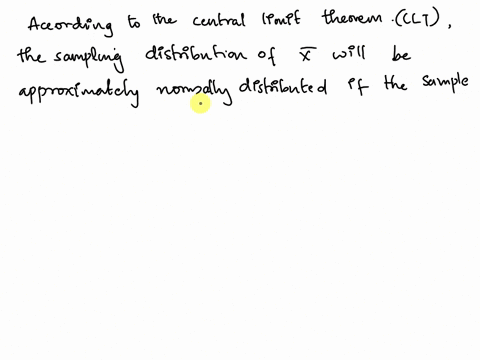 According to the central limit theorem (CLT),
the sampling distribution of x̅ will be
approximately normally distributed if the sample